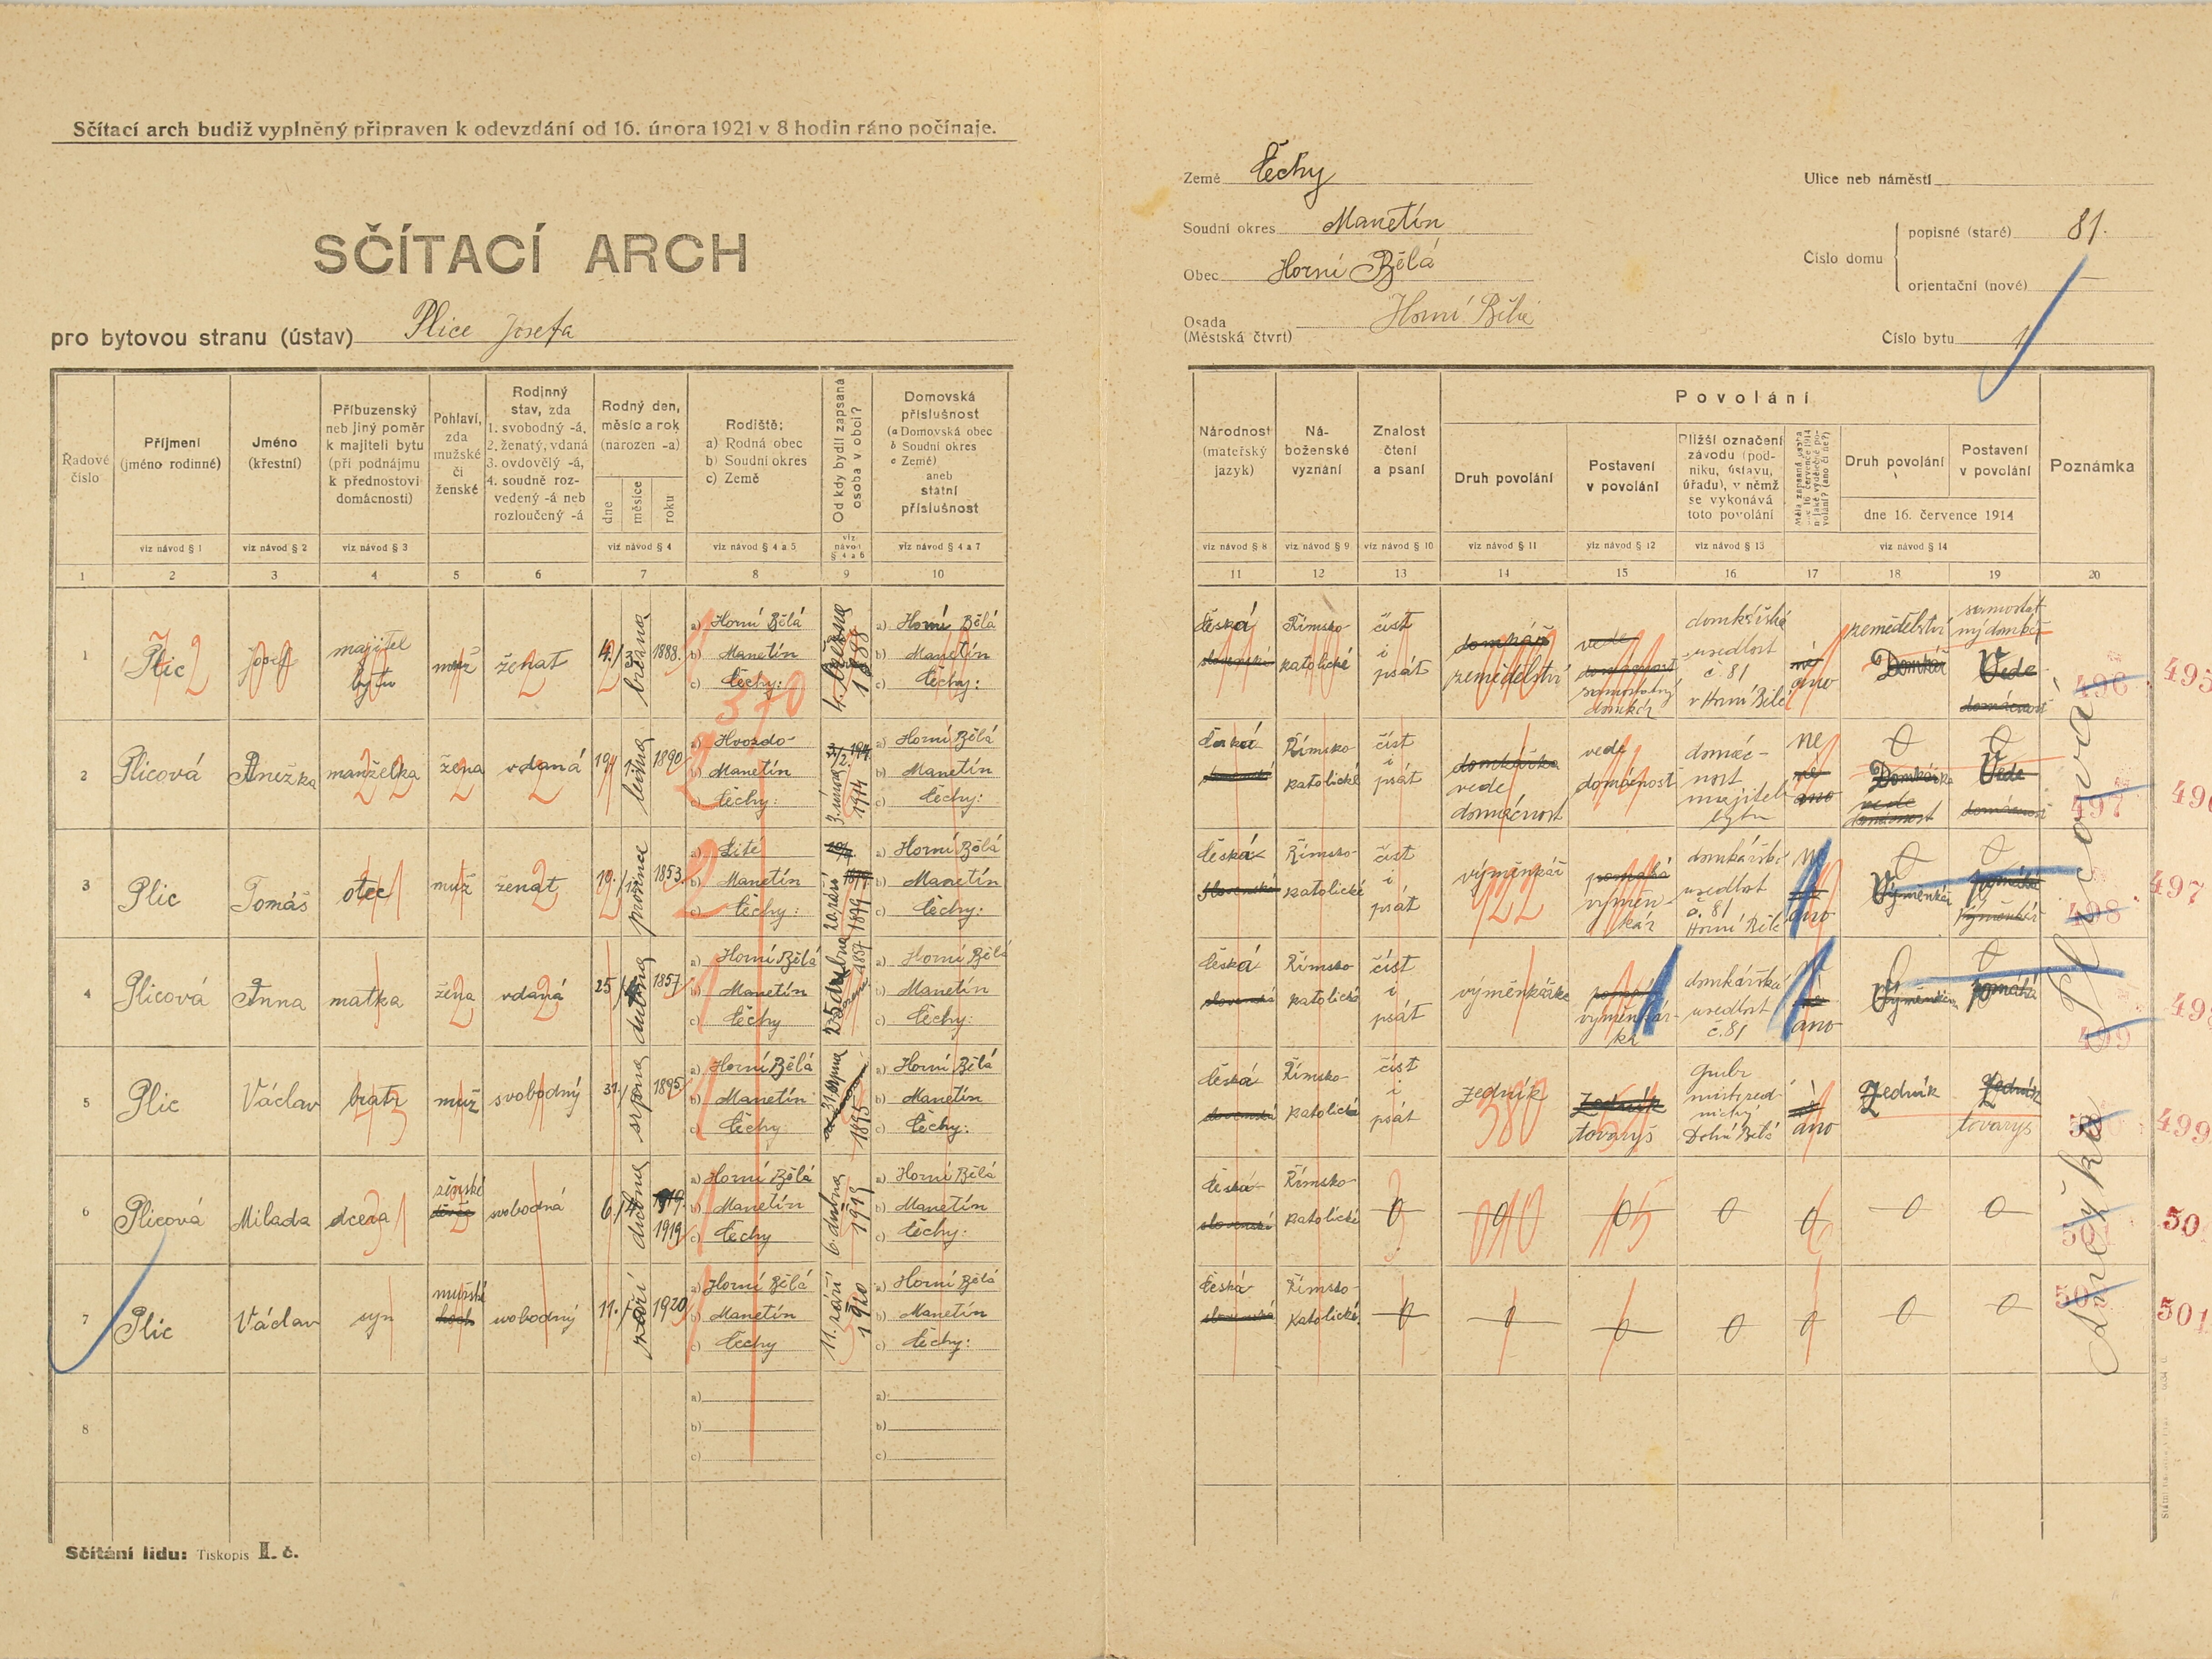 Sčítací arch budiž vyplněný připraven k odevzdání od 16. února 1921 v 8 hodin ráno počínaje.
SČÍTACÍ ARCH
pro bytovou stranu (ústav) Plice Josefa
Země Čechy
Soudní okres Manetín
Obec Horní Bělá
Osada (Městská čtvrt) Horní Bělá
Ulice neb náměstí
Číslo domu
popisné (staré) 81.
orientační (nové) —
Číslo bytu 1
Řadové číslo
Příjmení (jméno rodinné)
Jméno (křestní)
Příbuzenský neb jiný poměr k majiteli bytu (při podnájmu k přednostovi domácnosti)
Pohlaví, zda mužské či ženské
Rodinný stav, zda 1. svobodný -á, 2. ženatý, vdaná 3. ovdovělý -á, 4. soudně rozvedený -á neb rozloučený -á
Rodný den, měsíc a rok (narozen -a)
dne měsíce roku
Rodiště: a) Rodná obec b) Soudní okres c) Země
Od kdy bydlí zapsaná osoba v obci?
Domovská příslušnost (a Domovská obec b Soudní okres c Země) aneb státní příslušnost
Národnost (mateřský jazyk)
Náboženské vyznání
Znalost čtení a psaní
Povolání
Druh povolání
Postavení v povolání
Bližší označení závodu (podniku, ústavu, úřadu), v němž se vykonává toto povolání
Druh povolání
Postavení v povolání
dne 16. července 1914
Poznámka
viz návod § 1 viz návod § 2 viz návod § 3 viz návod § 4 viz návod § 4 a 5 viz návod § 4 a 6 viz návod § 4 a 7 viz návod § 8 viz návod § 9 viz návod § 10 viz návod § 11 viz návod § 12 viz návod § 13 viz návod § 14
1 2 3 4 5 6 7 8 9 10 11 12 13 14 15 16 17 18 19 20
1 Plic Josef majitel bytu muž ženat 4. března 1888.
a) Horní Bělá b) Manetín c) Čechy:
4. března 1888
a) Horní Bělá b) Manetín c) Čechy:
Česká slovenská Římsko-katolické číst i psát domkář zemědělství vede domácnost samostatný domkář
domkářská usedlost č. 81 v Horní Bělé ne ano zemědělství Domkář samostatný domkář Vede domácnost
496 495
2 Plicová Anežka manželka žena vdaná 19 ledna 1890
a) Hvozdo- b) Manetín c) Čechy:
3. února 1914
a) Horní Bělá b) Manetín c) Čechy:
Česká slovenská Římsko-katolické číst i psát domkářka vede domácnost vede domácnost
domácnost majitele bytu ne ano 0 Domkářka vede domácnost 0 Vede domácnost
497
3 Plic Tomáš otec muž ženat 19. prosince 1853.
a) Lité b) Manetín c) Čechy:
20 září 1879
a) Horní Bělá b) Manetín c) Čechy:
Česká slovenská Římsko-katolické číst i psát výměnkář pomáhá výměnkář
domkářská usedlost č. 81 Horní Bělé ne ano 0 Výměnkář 0 pomáhá výměnkář
498 497
4 Plicová Anna matka žena vdaná 25 dubna 1857
a) Horní Bělá b) Manetín c) Čechy
25 dubna 1857
a) Horní Bělá b) Manetín c) Čechy:
Česká slovenská Římsko-katolické číst i psát výměnkářka výměnkářka
domkářská usedlost č. 81 ano 0 Výměnkářka 0 pomáhá
499
5 Plic Václav bratr muž svobodný 31. srpna 1895
a) Horní Bělá b) Manetín c) Čechy
31 srpna 1895
a) Horní Bělá b) Manetín c) Čechy:
Česká slovenská Římsko-katolické číst i psát zedník Zedník tovaryš
mistr zednický Dolní Bělá ano Zedník Zedník tovaryš
499
6 Plicová Milada dcera ženské svobodná 6 dubna 1919
a) Horní Bělá b) Manetín c) Čechy
6. dubna 1919
a) Horní Bělá b) Manetín c) Čechy:
Česká slovenská Římsko-katolické 0 0 0 0 0 0 0
501 50
7 Plic Václav syn mužské hoch svobodný 11. září 1920
a) Horní Bělá b) Manetín c) Čechy
11. září 1920
a) Horní Bělá b) Manetín c) Čechy:
Česká slovenská Římsko-Katolické. 0 0 0 0 0 0 0
501
8 a) b) c) a) b) c)
Sčítání lidu: Tiskopis II. č.